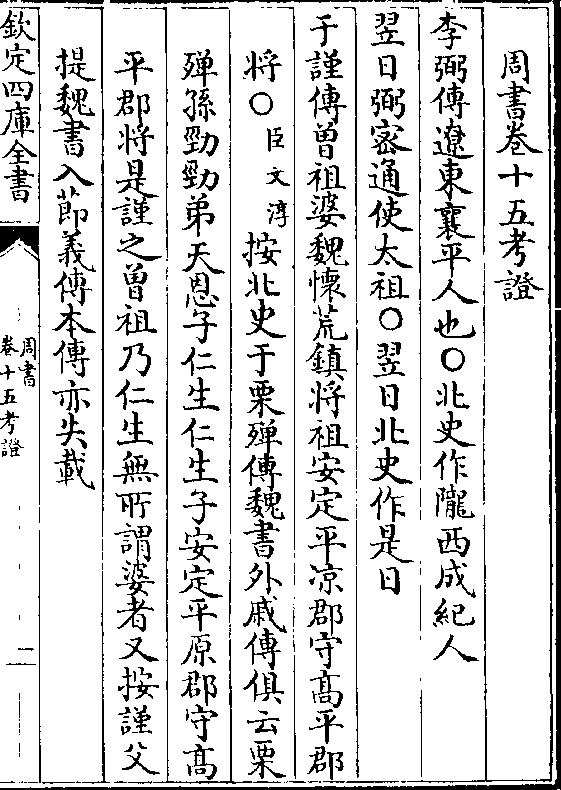 周書卷十五考證
李弼傳遼東襄平人也○北史作隴西成紀人
翌日弼密通使太祖○翌日北史作是日
于謹傳曾祖婆魏懷荒鎮將祖安定平凉郡守高平郡
將○臣文淳按北史于栗磾傳魏書外戚傳俱云栗
磾孫勁勁弟天恩子仁生仁生子安定平原郡守高
平郡將是謹之曾祖乃仁生無所謂婆者又按謹父
提魏書入節義傳本傳亦失載
欽定四庫全書
周書
卷十五考證
二